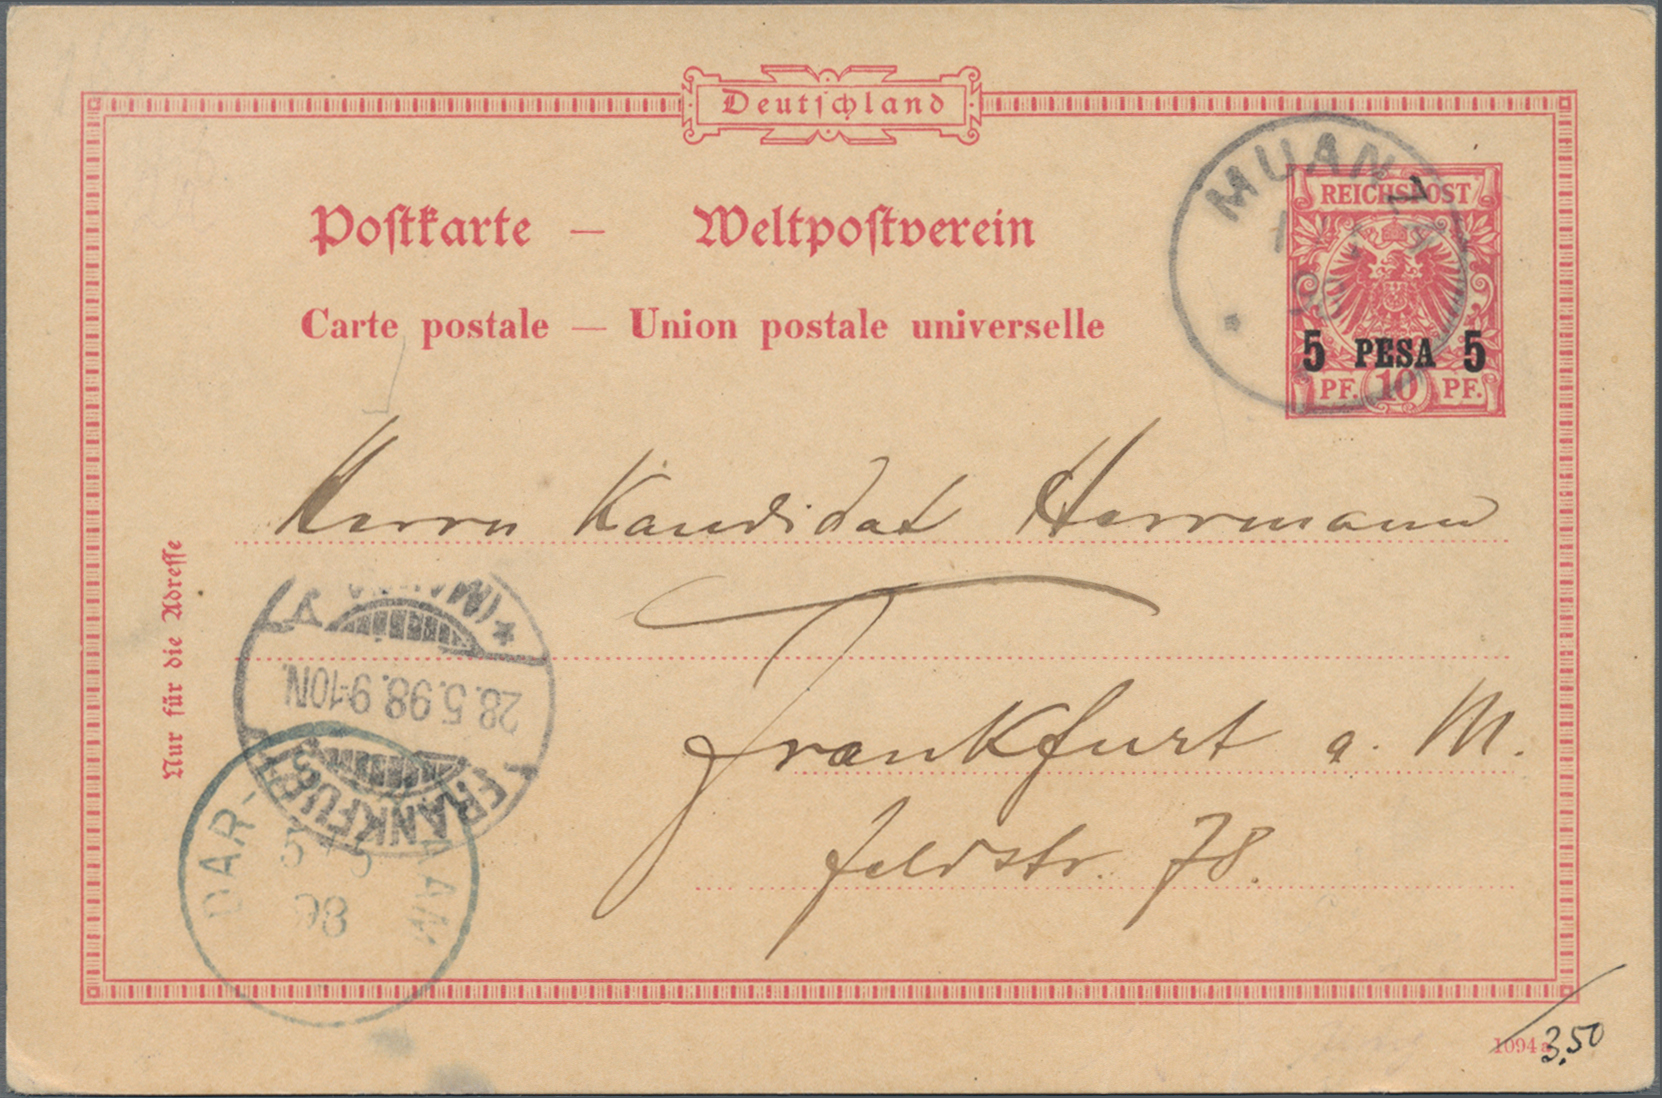 Deutschland
Postkarte — Weltpostverein
Carte postale — Union postale universelle
MUANZA
REICHSPOST
5 PESA 5
PF. 10 PF.
Herrn Kandidat Herrmann
Frankfurt a. M.
Feldstr. 78.
Nur für die Adresse
(MAIN)
28.5.98.9-10N.
FRANKFURT
DAR-ES-SALAAM
5/5
98
1094a
3,50